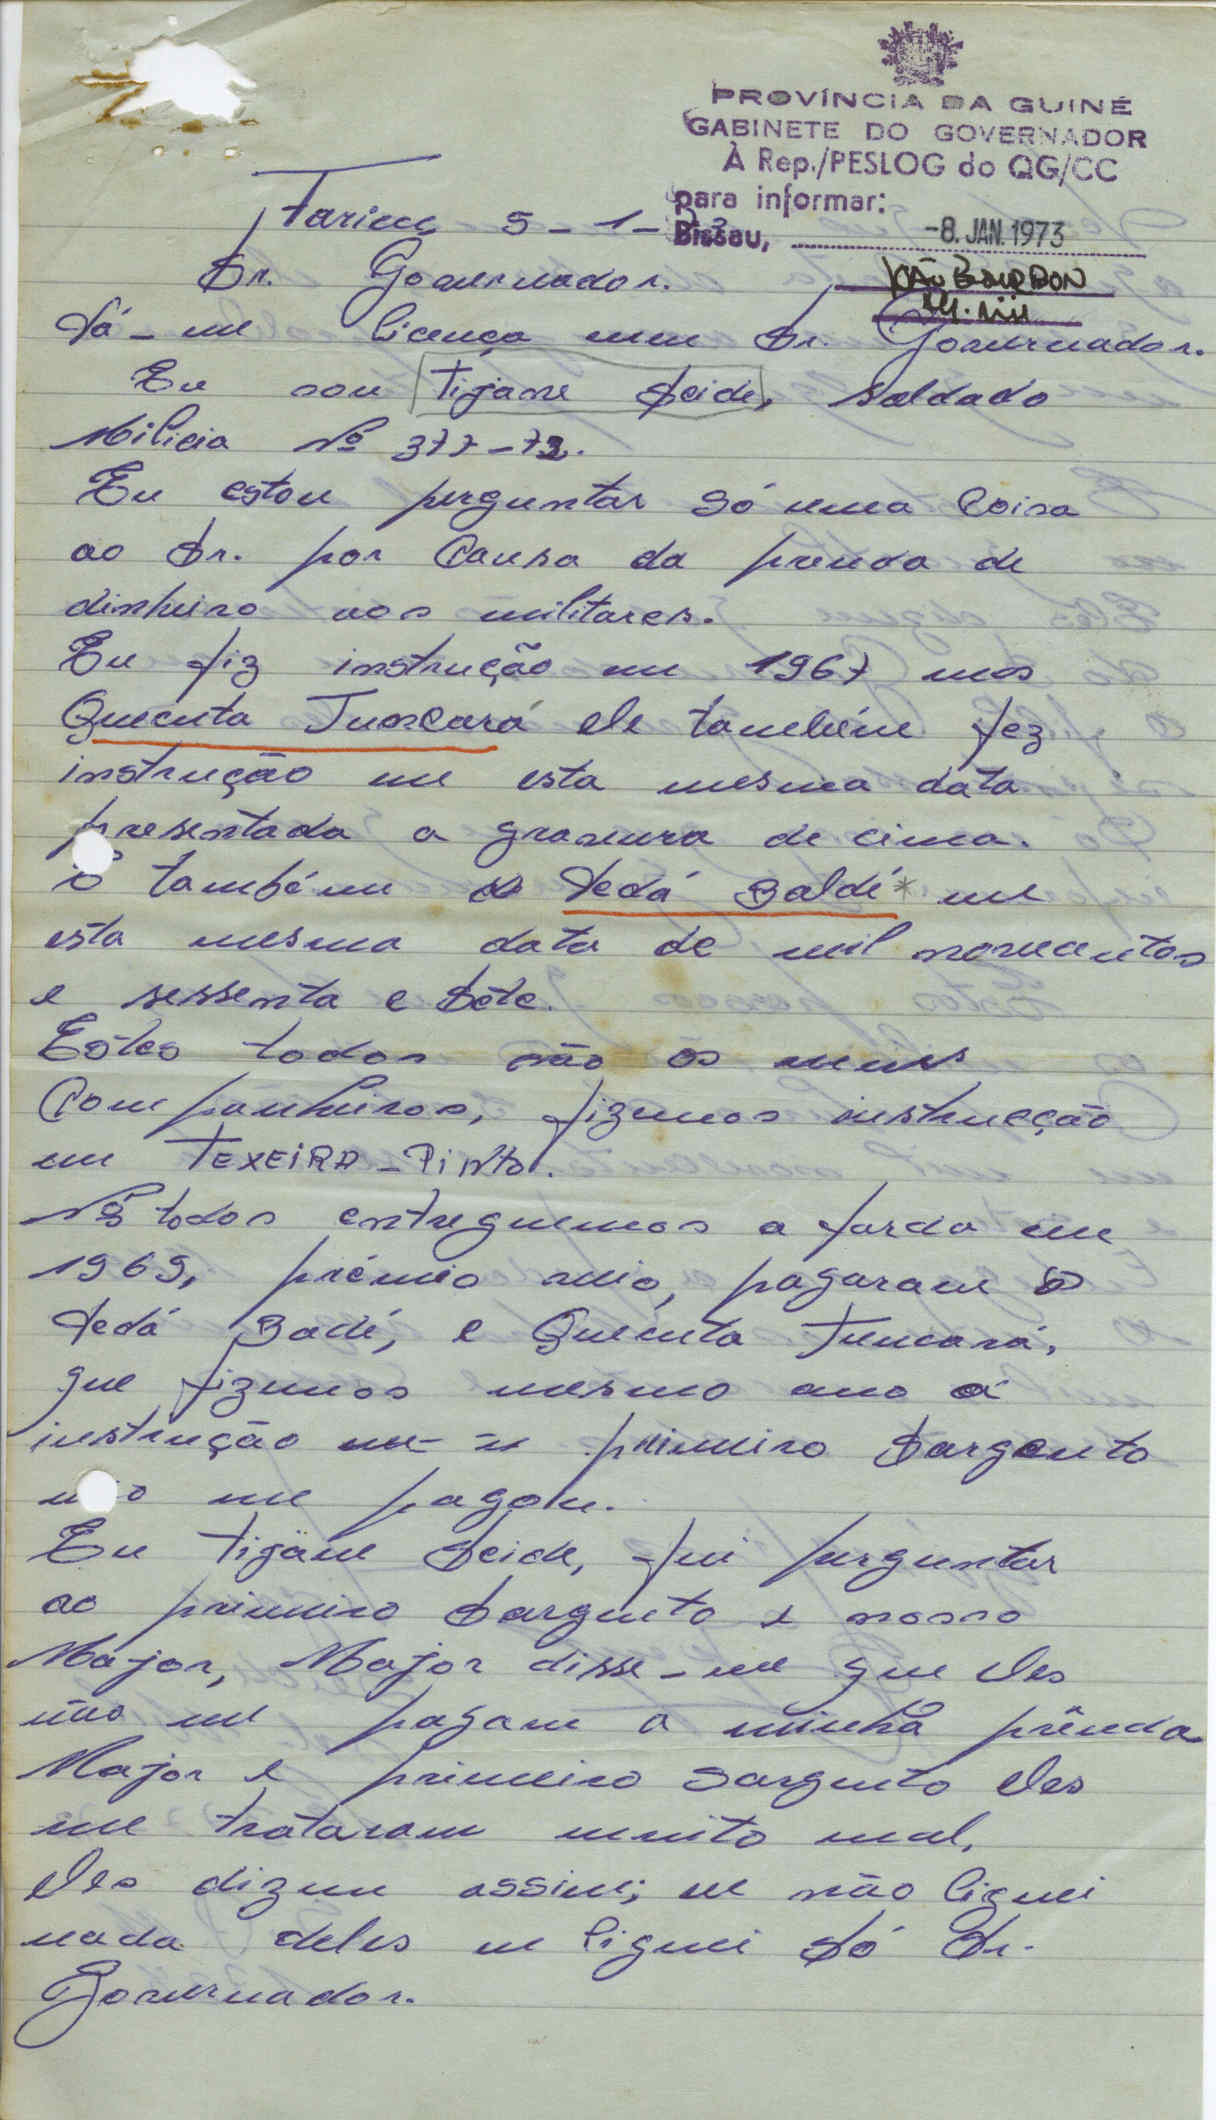 PROVÍNCIA DA GUINÉ
GABINETE DO GOVERNADOR
À Rep./PESLOG do QG/CC
para informar:
Bissau, -8. JAN. 1973
Farim, 5-1-73
Sr. Governador.
Dá-me licença meu Sr. Governador.
Eu sou Tijane Seide, soldado
Milicia Nº 377-72.
Eu estou perguntar só uma coisa
ao Sr. por causa da prenda de
dinheiro aos militares.
Eu fiz instrução em 1967 mas
Quecuta Tuncará ele também fez
instrução em esta mesma data
presentada a gravura de cima.
E também o Dedá Baldé* em
esta mesma data de mil novecentos
e sessenta e sete.
Estes todos são os meus
Companheiros, fizemos instrucção
em TEXEIRA-Pinto.
Nós todos entreguemos a farda em
1969, prémio meio, pagaram o
Dedá Badé, e Quecuta Tuncará,
que fizemos mesmo ano a
instrução em primeiro Sargento
não me pagou.
Eu Tijane Seide, fui perguntar
ao primeiro Sargento e nosso
Major, Major disse-me que eles
não me pagam a minha prênda
Major e primeiro Sargento eles
me trataram muito mal.
eles dizem assim; eu não liguei
nada deles eu liguei só Sr.
Governador.